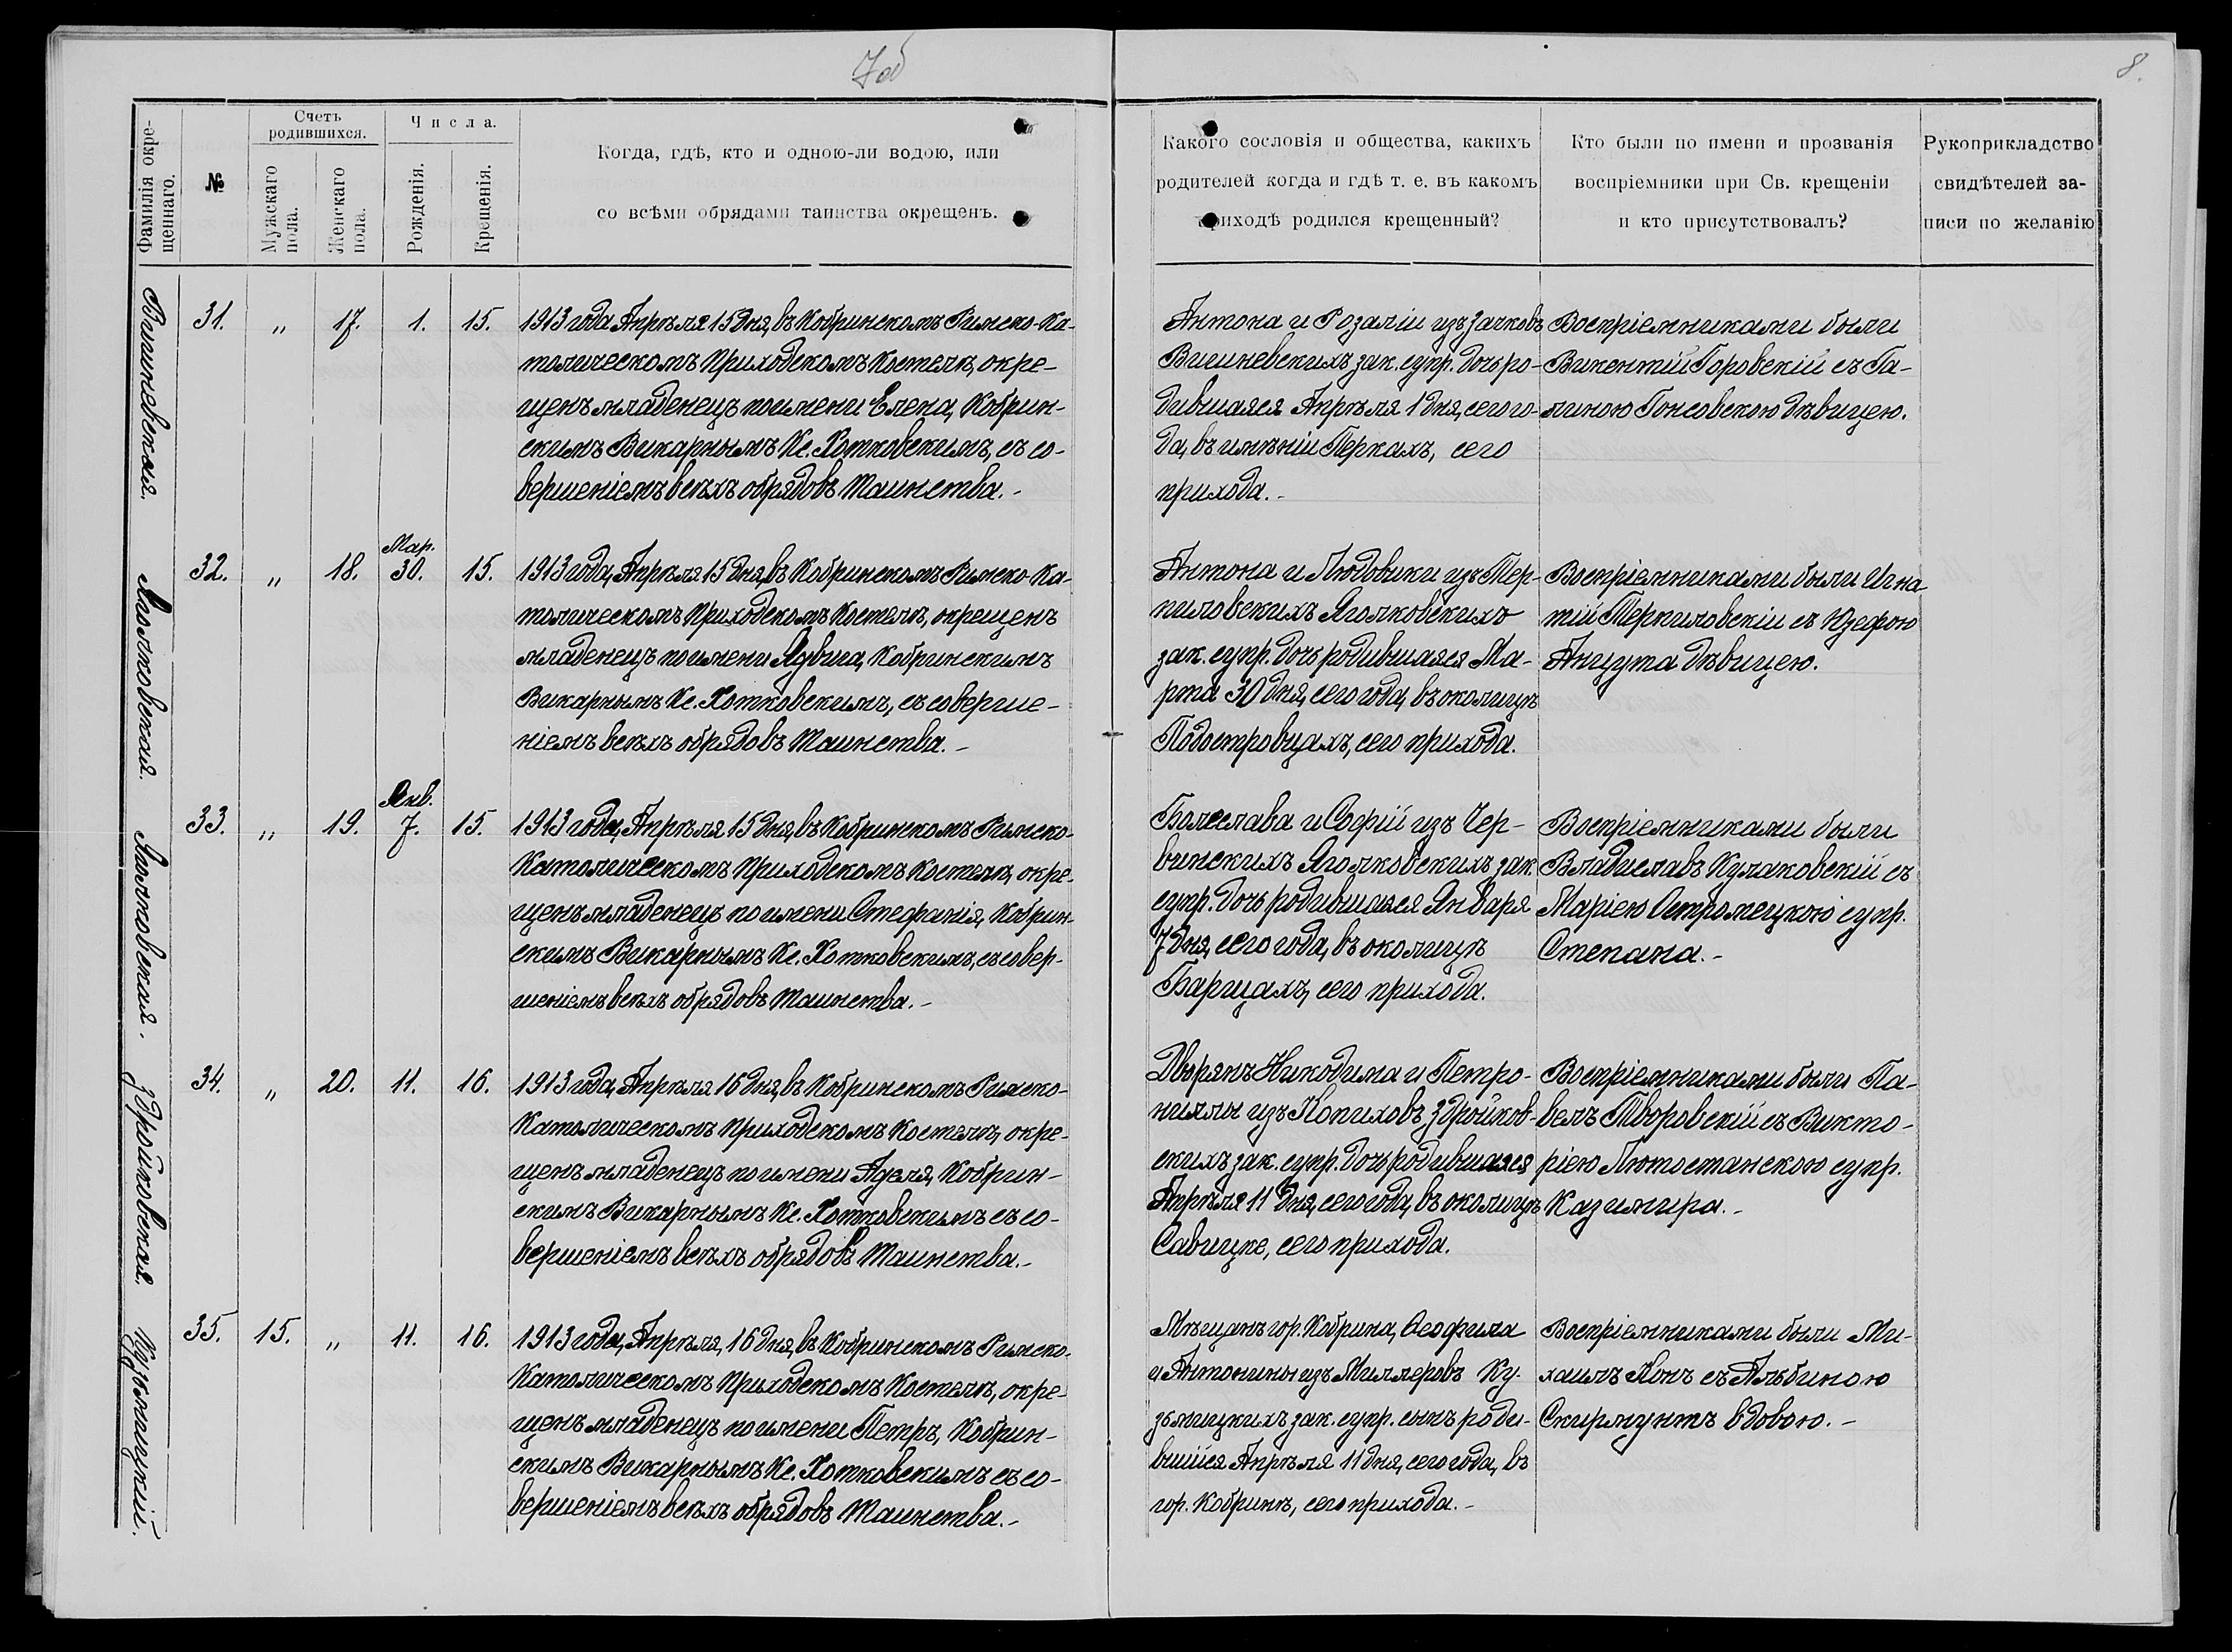 7об
8.
Фамилія окре-
щеннаго.
№
Счетъ
родившихся.
Мужскаго
пола.
Женскаго
пола.
Числа.
Рожденія.
Крещенія.
Когда, гдѣ, кто и одною-ли водою, или
со всѣми обрядами таинства окрещенъ.
Какого сословія и общества, какихъ
родителей когда и гдѣ т. е. въ какомъ
приходѣ родился крещенный?
Кто были по имени и прозванія
воспріемники при Св. крещеніи
и кто присутствовалъ?
Рукоприкладство
свидѣтелей за-
писи по желанію
Вишневская.
31. „ 17. 1. 15.
1913 года Апрѣля 15 дня, въ Кобринскомъ Римско-Ка-
толическомъ Приходскомъ Костелѣ, окре-
щенъ младенецъ по имени Елена, Кобрин-
скимъ Викарнымъ Кс. Хотковскимъ, съ со-
вершеніемъ всѣхъ обрядовъ Таинства.-
Антона и Розаліи изъ Зачковъ
Вишневскихъ зак. супр. дочь ро-
дившаяся Апрѣля 1 дня, сего го-
да, въ имѣніи Перкахъ, сего
прихода.-
Воспріемниками были
Викентій Горовскій съ Га-
линою Гонсовскою дѣвицею.
Яголковская.
32. „ 18. Мар. 30. 15.
1913 года, Апрѣля 15 дня, въ Кобринскомъ Римско-Ка-
толическомъ Приходскомъ Костелѣ, окрещенъ
младенецъ по имени Ядвига, Кобринскимъ
Викарнымъ Кс. Хотковскимъ, съ соверше-
ніемъ всѣхъ обрядовъ Таинства.-
Антона и Людовики изъ Тер-
пиловскихъ Яголковскихъ
зак. супр. дочь родившаяся Ма-
рта 30 дня, сего года, въ околицѣ
Подостровцахъ, сего прихода.
Воспріемниками были Игна-
тій Терпиловскій съ Юзефою
Анцута дѣвицею.
Яголковская.
33. „ 19. Янв. 7. 15.
1913 года, Апрѣля 15 дня, въ Кобринскомъ Римско-
Католическомъ Приходскомъ Костелѣ, окре-
щенъ младенецъ по имени Стефанія, Кобрин-
скимъ Викарнымъ Кс. Хотковскимъ, съ совер-
шеніемъ всѣхъ обрядовъ Таинства.-
Болеслава и Софій изъ Чер-
винскихъ Яголковскихъ зак.
супр. дочь родившаяся Января
7 дня, сего года, въ околицѣ
Барщахъ, сего прихода.
Воспріемниками были
Владиславъ Кулаковскій съ
Маріею Остромецкою супр.
Степана.-
Здройковская.
34. „ 20. 11. 16.
1913 года, Апрѣля 16 дня, въ Кобринскомъ Римско-
Католическомъ Приходскомъ Костелѣ, окре-
щенъ младенецъ по имени Аделя, Кобрин-
скимъ Викарнымъ Кс. Хотковскимъ съ со-
вершеніемъ всѣхъ обрядовъ Таинства.-
Дворянъ Никодима и Петро-
нилы изъ Копиховъ Здройков-
скихъ зак. супр. дочь родившаяся
Апрѣля 11 дня, сего года, въ околицѣ
Савицке, сего прихода.
Воспріемниками были Па-
велъ Творовскій съ Викто-
ріею Лютостанскою супр.
Казимира.-
Кузьмицкій.
35. 15. „ 11. 16.
1913 года, Апрѣля, 16 дня, въ Кобринскомъ Римско-
Католическомъ Приходскомъ Костелѣ, окре-
щенъ младенецъ по имени Петръ, Кобрин-
скимъ Викарнымъ Кс. Хотковскимъ съ со-
вершеніемъ всѣхъ обрядовъ Таинства.-
Мѣщанъ гор. Кобрина, Ѳеофила
и Антонины изъ Миллеровъ Ку-
зьмицкихъ зак. супр. сынъ роди-
вшійся Апрѣля 11 дня, сего года, въ
гор. Кобринѣ, сего прихода.-
Воспріемниками были Ми-
хаилъ Конъ съ Альбиною
Скирмунтъ вдовою.-